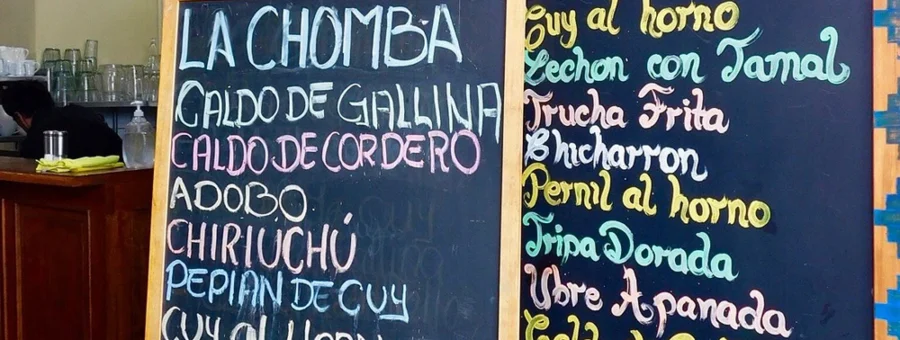 LA CHOMBA
CALDO DE GALLINA
CALDO DE CORDERO
ADOBO
CHIRIUCHÚ
PEPIAN DE CUY
CUY AL
Cuy al horno
Lechon con Tamal
Trucha Frita
Chicharron
Pernil al horno
Tripa Dorada
Ubre Apanada